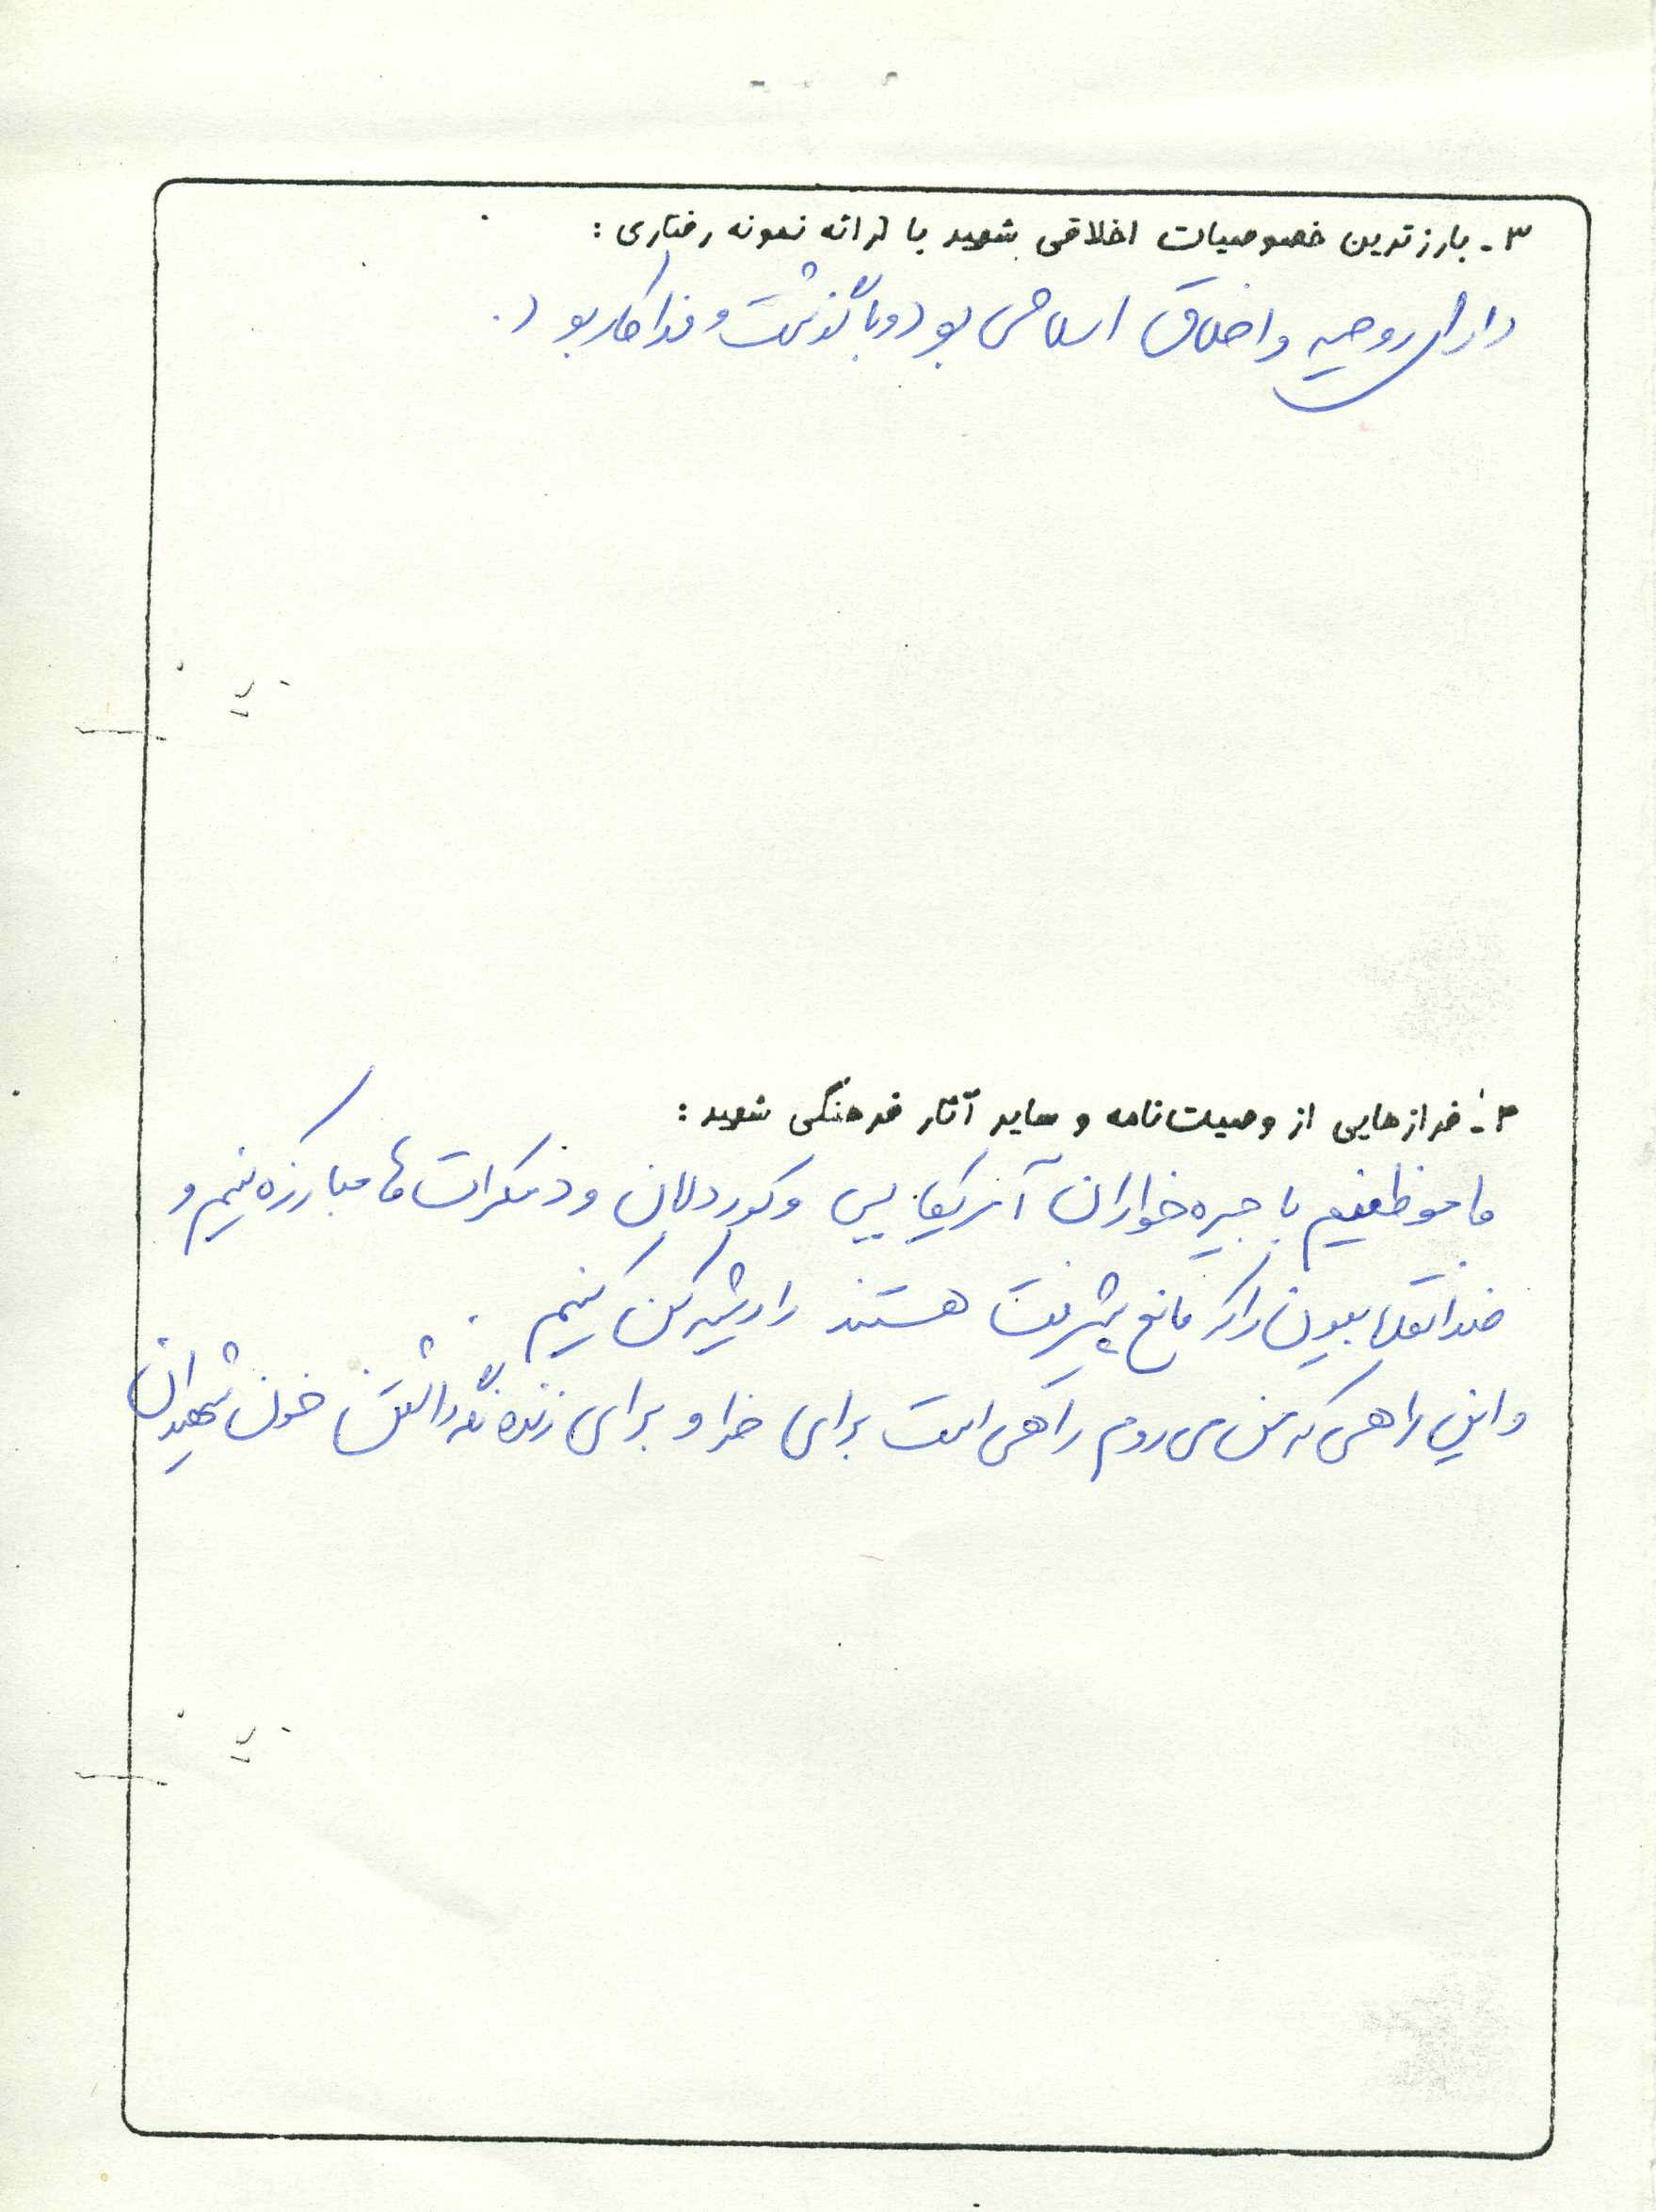 ۳ - بارزترین خصوصیات اخلاقی شهید با ارائه نمونه رفتاری :
دارای روحیه و اخلاق اسلامی بود و باگذشت و فداکار بود .
۴ - فرازهایی از وصیت‌نامه و سایر آثار فرهنگی شهید :
ما موظفیم با جیره خواران آمریکایی و کوردلان و دمکرات ها مبارزه کنیم و
ضد انقلابیون را که مانع پیشرفت هستند را ریشه کن کنیم .
و این راهی که من می روم راهی است برای خدا و برای زنده نگه داشتن خون شهیدان